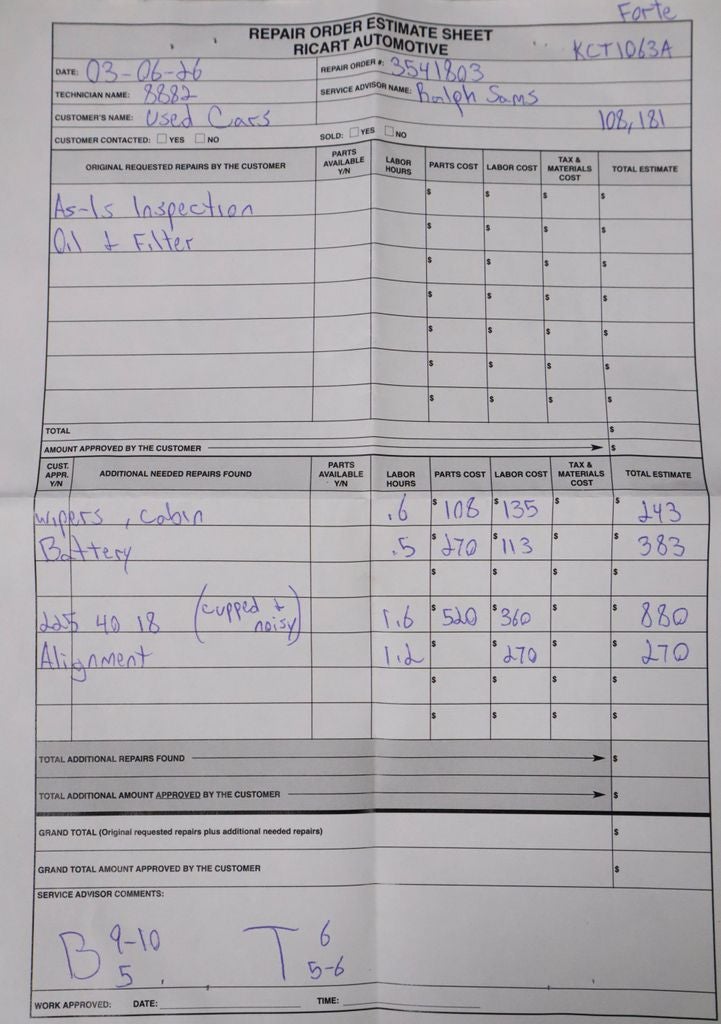 Forte
REPAIR ORDER ESTIMATE SHEET
RICART AUTOMOTIVE
KCT1063A
DATE: 03-06-26 REPAIR ORDER #: 3541803
TECHNICIAN NAME: 8882 SERVICE ADVISOR NAME: Ralph Sams
CUSTOMER'S NAME: Used Cars 108,181
CUSTOMER CONTACTED: YES NO SOLD: YES NO
ORIGINAL REQUESTED REPAIRS BY THE CUSTOMER PARTS AVAILABLE Y/N LABOR HOURS PARTS COST LABOR COST TAX & MATERIALS COST TOTAL ESTIMATE
As-Is Inspection $ $ $ $
Oil & Filter $ $ $ $
$ $ $ $
$ $ $ $
$ $ $ $
$ $ $ $
$ $ $ $
TOTAL $
AMOUNT APPROVED BY THE CUSTOMER $
CUST. APPR. Y/N ADDITIONAL NEEDED REPAIRS FOUND PARTS AVAILABLE Y/N LABOR HOURS PARTS COST LABOR COST TAX & MATERIALS COST TOTAL ESTIMATE
wipers, cabin .6 $ 108 $ 135 $ $ 243
Battery .5 $ 270 $ 113 $ $ 383
$ $ $ $
225 40 18 (cupped & noisy) 1.6 $ 520 $ 360 $ $ 880
Alignment 1.2 $ $ 270 $ $ 270
$ $ $ $
$ $ $ $
TOTAL ADDITIONAL REPAIRS FOUND $
TOTAL ADDITIONAL AMOUNT APPROVED BY THE CUSTOMER $
GRAND TOTAL (Original requested repairs plus additional needed repairs) $
GRAND TOTAL AMOUNT APPROVED BY THE CUSTOMER $
SERVICE ADVISOR COMMENTS:
B 9-10 T 6
5 5-6
WORK APPROVED: DATE: TIME: